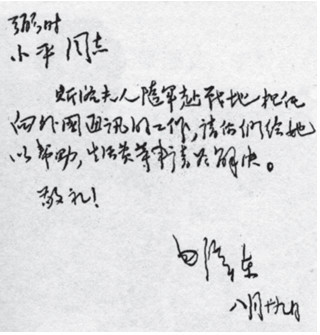 弼时
小平 同志
斯洛夫人随军赴战地担任
向外国通讯的工作，请你们给她
以帮助，生活费等事请为解决。
敬礼！
毛泽东
八月十九日